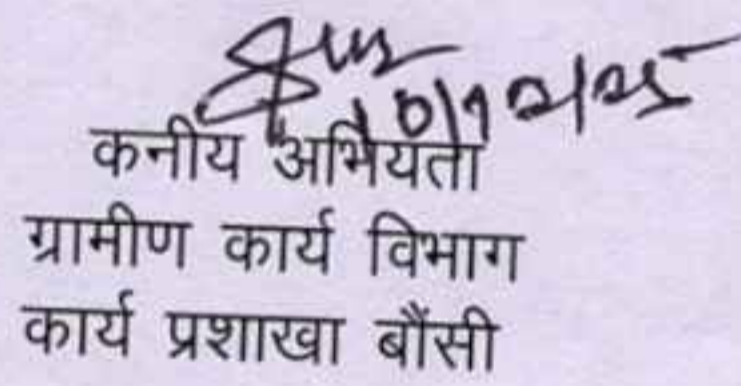 10/12/25
कनीय अभियंता
ग्रामीण कार्य विभाग
कार्य प्रशाखा बौंसी